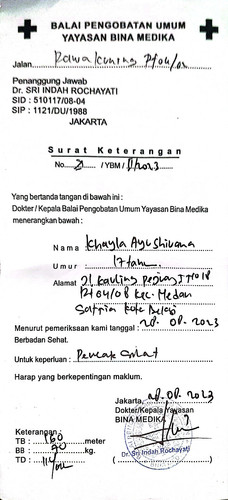 BALAI PENGOBATAN UMUM
YAYASAN BINA MEDIKA
Jalan
Penanggung Jawab
Dr. SRI INDAH ROCHAYATI
SID : 510117/08-04
SIP : 1121/DU/1988
JAKARTA
Surat Keterangan
No. / YBM / /2023
Yang bertanda tangan di bawah ini :
Dokter / Kepala Balai Pengobatan Umum Yayasan Bina Medika
menerangkan bawah :
Nama : Khayla
Umur : 17 tahun
Alamat : Jl. Kavling
RT 04/08 Kec. Medan
Satria Kota Bekasi
Menurut pemeriksaan kami tanggal : 28.08.2023
Berbadan Sehat.
Untuk keperluan : Pencak Silat
Harap yang berkepentingan maklum.
Jakarta, 28.08.2023
Dokter/Kepala Yayasan
BINA MEDIKA
Keterangan :
TB : 160 meter
BB : kg.
TD :
Dr. Sri Indah Rochayati